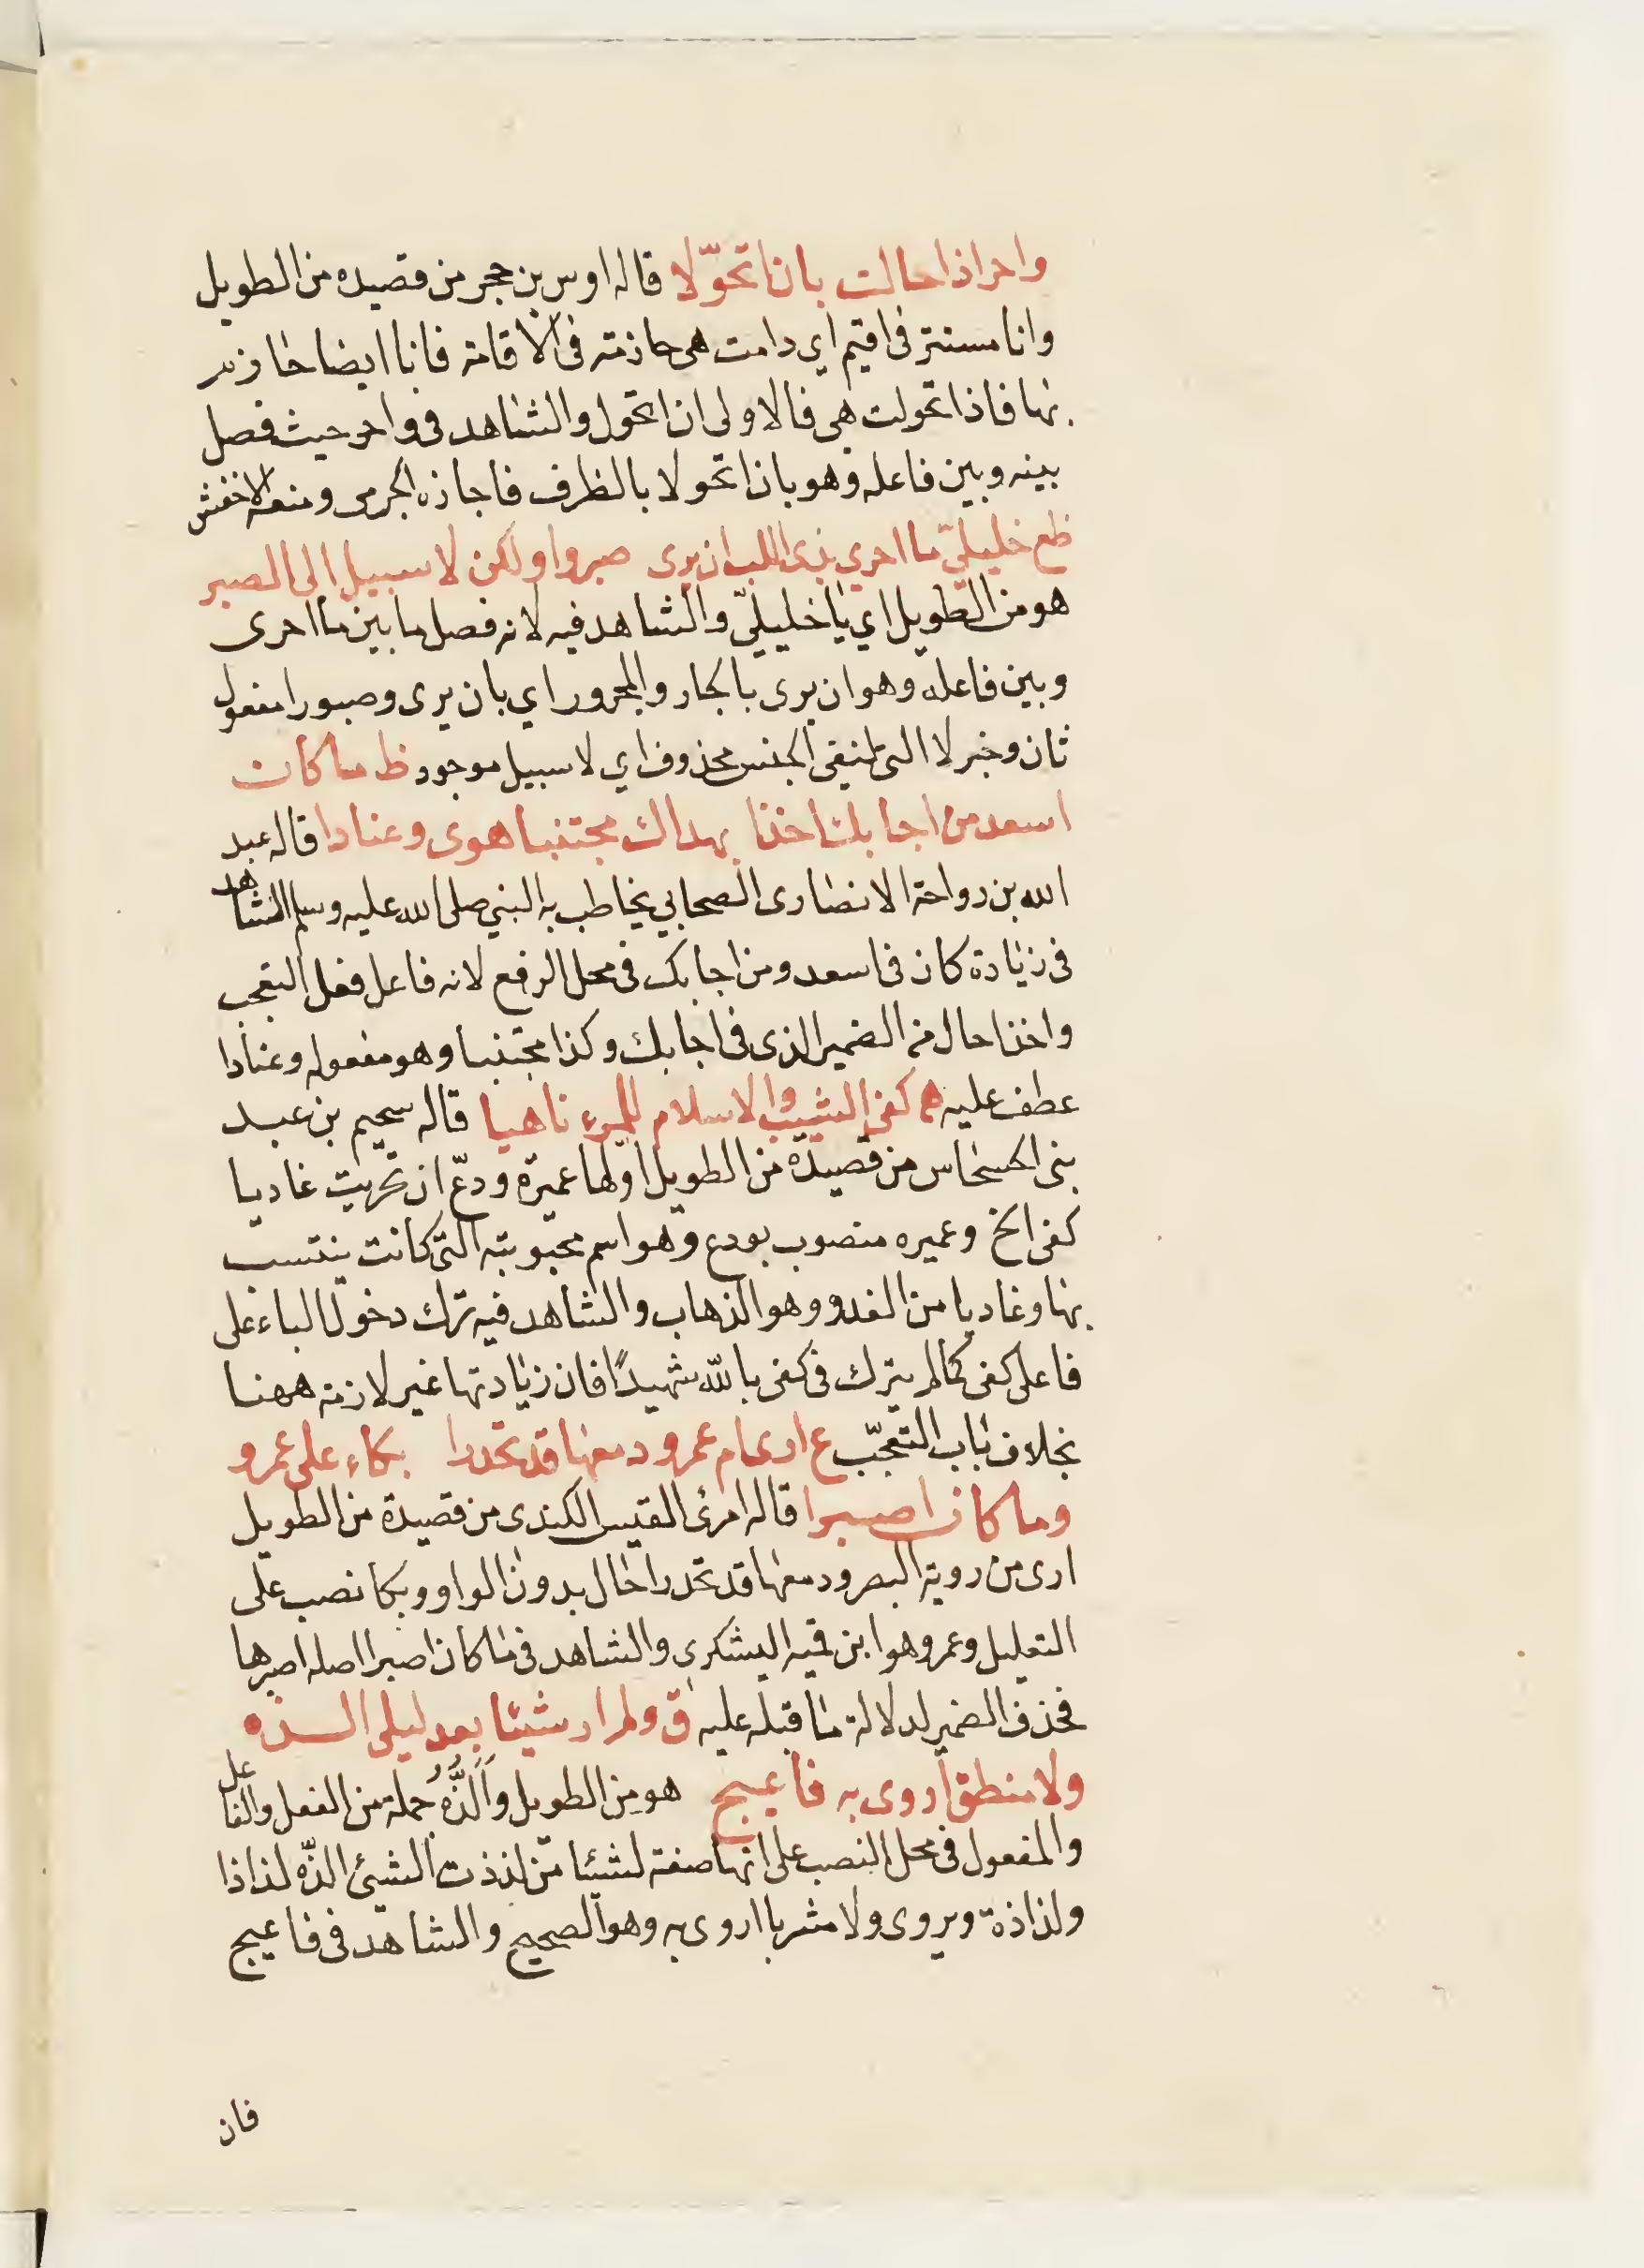 واحر اذا حالت بان اتحوّلا قاله اوس بن حجر من قصيده من الطويل
وانا مستتر فى اقيم اي دامت هى حازمته فى الاقامة فانا ايضا حازم
بها فاذا تحولت هى فالاولى ان اتحول والشاهد فى واحر حيث فصل
بينه وبين فاعله وهو بان اتحولا بالظرف فاجازه الجرمى ومنعه الاخفش
ظع خليليّ ما احرى بذى اللب ان يرى صبروا ولكن لا سبيل الى الصبر
هو من الطويل اي يا خليليّ والشاهد فيه لانه فصل ما بين ما احرى
وبين فاعله وهو ان يرى بالجار والمجرور اي بان يرى وصبورا مفعول
ثان وخبر لا التى لنفى الجنس محذوف اي لا سبيل موجود ظ ما كان
اسعد من اجابك اخذا بهداك مجتنبا هوى وعنادا قاله عبد
الله بن رواحة الانصارى الصحابي يخاطب به النبي صلى الله عليه وسلم الشاهد
فى زيادة كان فى اسعد ومن اجابك فى محل الرفع لانه فاعل فعل التعجب
واخذا حال من الضمير الذى فى اجابك وكذا مجتنبا وهو مفعوله وعنادا
عطف عليه هم كفى الشيب والاسلام للمرء ناهيا قاله سحيم بن عبد
بنى الحسحاس من قصيدة من الطويل اولها عميرة ودّع ان تجهزت غاديا
كفى الخ وعميره منصوب بودع وهو اسم محبوبته التى كانت ينتسب
بها وغاديا من الغدو وهو الذهاب والشاهد فيه ترك دخول الباء على
فاعل كفى كما لم يترك فى كفى بالله شهيدًا فان زيادتها غير لازمة ههنا
بخلاف باب التعجّب ع ارى ام عمرو دمعها قد تحدرا بكاء على عمرو
وما كان اصبرا قاله امرئ القيس الكندى من قصيدة من الطويل
ارى من روية البصر ودمعها قد تحدرا حال بدون الواو وبكا نصب على
التعليل وعمرو هو ابن قميه اليشكرى والشاهد فى ما كان اصبرا اصله اصبرها
فحذف الضمير لدلالة ما قبله عليه ق ولم ار شيئا بعد ليلى الذه
ولا منطق اروى به فاعيج هو من الطويل وَالَذُّهُ جملة من الفعل والفاعل
والمفعول فى محل النصب على انها صفة لشيئا من لذذت الشيئ الذّه لذاذا
ولذاذة ويروى ولا مشربا اروى به وهو الصحيح والشاهد فى فاعيج
فان